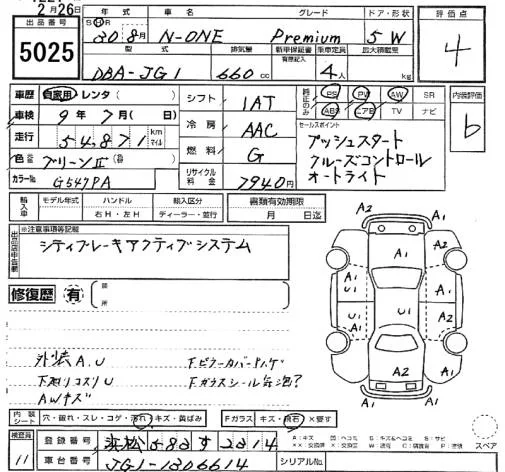 2月26日
出品番号
5025
年式 車名 グレード ドア・形状
S H 30年8月 N-ONE Premium 5W
型式 排気量 新車保証書 乗車定員 最大積載量
有原記入
DBA-JG1 660cc 4人 kg
評価点
4
車歴 自家用 レンタ( )
車検 9年7月( 日)
走行 54,871 km マイル
色替 グリーンⅡ
カラーNo G547PA
シフト 1AT
冷房 AAC
燃料 G
リサイクル料金 7940円
純正のみ PS PW AW SR
ABS エアB TV ナビ
セールスポイント
プッシュスタート
クルーズコントロール
オートライト
内装評価
b
輸入車 モデル年式 ハンドル 輸入区分 書類有効期限
右H・左H ディーラー・並行 月 日迄
出品店申告欄
※注意事項等記載
シティブレーキアクティブシステム
修復歴 有 箇所
A2 A1
A1
A1 U1 A1
A1 U1 A2
A1 A2 A1
A2 A1
外装A.U
下廻りコスリU
AWキズ
Fピラーカバーハゲ
Fガラスシール気泡?
内装シート 穴・破れ・スレ・コゲ・汚れ・キズ・黄ばみ Fガラス キズ・飛石・X要す
検査員 11
登録番号 浜松583す2314
車台番号 JG1-1306614 シリアルNo.
A:キズ U:ヘコミ
スペア